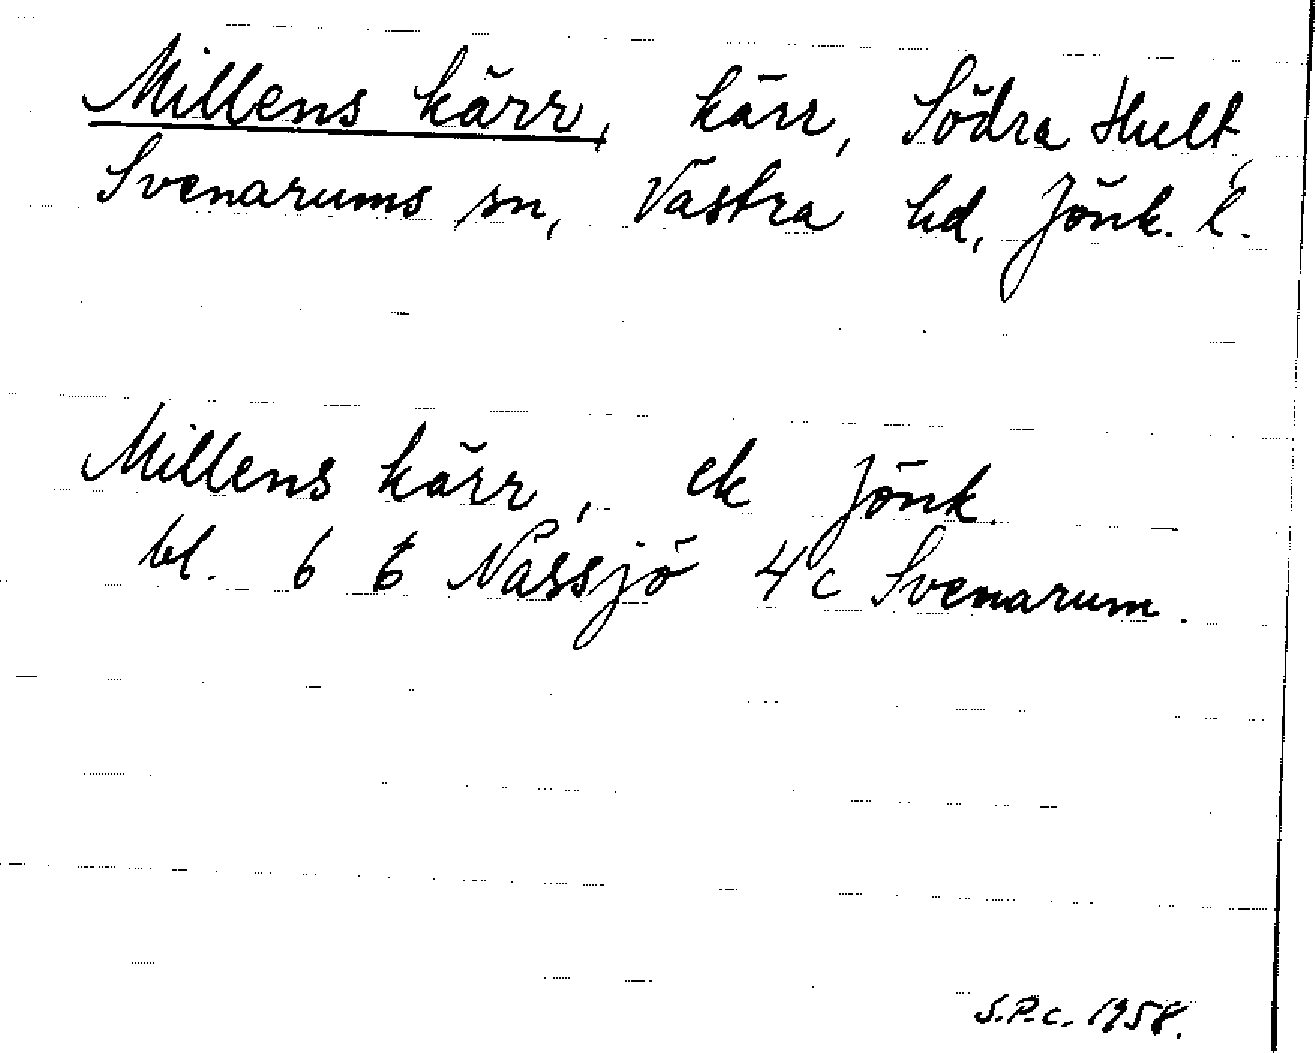 Millens kärr, kärr, Södra Hult,
Svenarums sn, Västra hd, Jönk. l.
Millens kärr, ek Jönk.
bl. 6 E Nässjö 4 c Svenarum.
S.P.c. 1958.